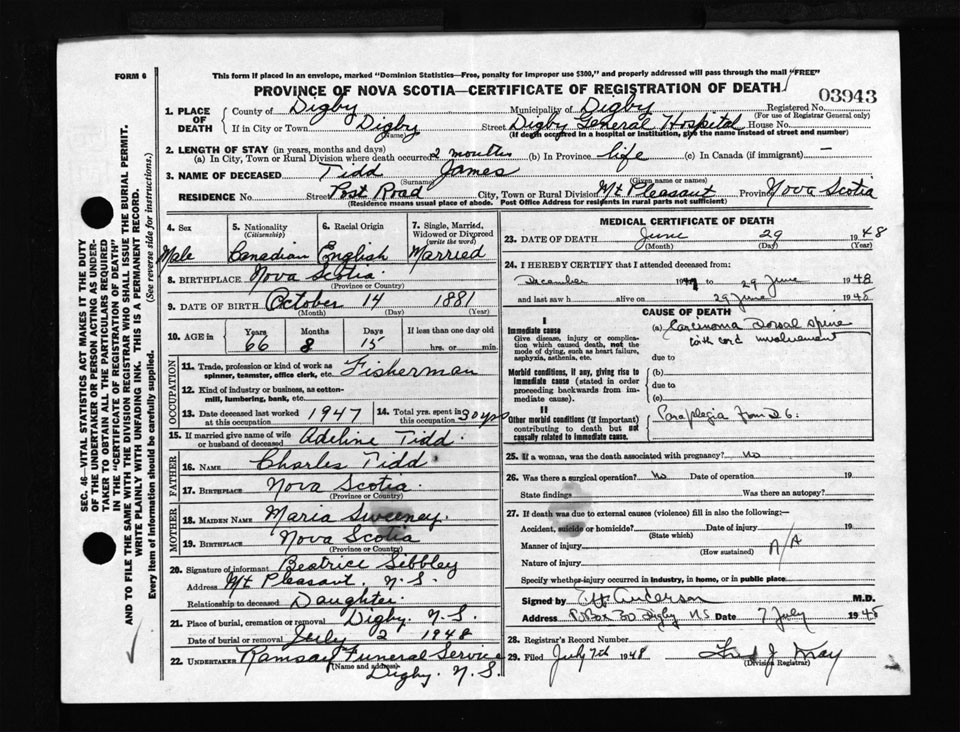 FORM 6
This form if placed in an envelope, marked "Dominion Statistics—Free, penalty for improper use $300," and properly addressed will pass through the mail "FREE"
PROVINCE OF NOVA SCOTIA—CERTIFICATE OF REGISTRATION OF DEATH
03943
1. PLACE OF DEATH
County of Digby Municipality of Digby Registered No.
(For use of Registrar General only)
If in City or Town Digby Street Digby General Hospital House No.
(Name) (If death occurred in a hospital or institution, give the name instead of street and number)
2. LENGTH OF STAY (in years, months and days)
(a) In City, Town or Rural Division where death occurred 2 months (b) In Province life (c) In Canada (if immigrant) —
3. NAME OF DECEASED Tidd James
(Surname) (Given name or names)
RESIDENCE No. Street Post Road City, Town or Rural Division Mt Pleasant Province Nova Scotia
(Residence means usual place of abode. Post Office Address for residents in rural parts not sufficient)
SEC. 46—VITAL STATISTICS ACT MAKES IT THE DUTY
OF THE UNDERTAKER OR PERSON ACTING AS UNDER-
TAKER TO OBTAIN ALL THE PARTICULARS REQUIRED
IN THE "CERTIFICATE OF REGISTRATION OF DEATH"
AND TO FILE THE SAME WITH THE DIVISION REGISTRAR WHO SHALL ISSUE THE BURIAL PERMIT.
WRITE PLAINLY WITH UNFADING INK. THIS IS A PERMANENT RECORD.
Every item of information should be carefully supplied. (See reverse side for instructions.)
4. Sex 5. Nationality (Citizenship) 6. Racial Origin 7. Single, Married, Widowed or Divorced (write the word)
Male Canadian English Married
8. BIRTHPLACE Nova Scotia
(Province or Country)
9. DATE OF BIRTH October 14 1881
(Month) (Day) (Year)
10. AGE in Years Months Days If less than one day old
66 8 15 hrs. or min.
OCCUPATION
11. Trade, profession or kind of work as spinner, teamster, office clerk, etc. Fisherman
12. Kind of industry or business, as cotton-mill, lumbering, bank, etc.
13. Date deceased last worked at this occupation 1947 14. Total yrs. spent in this occupation 30 yrs
15. If married give name of wife or husband of deceased Adeline Tidd
FATHER
16. NAME Charles Tidd
17. BIRTHPLACE Nova Scotia
(Province or Country)
MOTHER
18. MAIDEN NAME Maria Sweeney
19. BIRTHPLACE Nova Scotia
(Province or Country)
20. Signature of informant Beatrice Sibbley
Address Mt Pleasant, N.S.
Relationship to deceased Daughter
21. Place of burial, cremation or removal Digby. N.S.
Date of burial or removal July 2 1948
22. UNDERTAKER Ramsay Funeral Service
(Name and address) Digby. N.S.
MEDICAL CERTIFICATE OF DEATH
23. DATE OF DEATH June 29 1948
(Month) (Day) (Year)
24. I HEREBY CERTIFY that I attended deceased from:
December 1947 to 29 June 1948
and last saw h alive on 29 June 1948
CAUSE OF DEATH
I
Immediate cause
Give disease, injury or complication which caused death, not the mode of dying, such as heart failure, asphyxia, asthenia, etc.
(a) Carcinoma dorsal spine
with cord involvement
due to
Morbid conditions, if any, giving rise to immediate cause (stated in order proceeding backwards from immediate cause).
(b)
due to
(c)
II
Other morbid conditions (if important) contributing to death but not causally related to immediate cause.
Paraplegia from D6.
25. If a woman, was the death associated with pregnancy? no
26. Was there a surgical operation? no Date of operation 19
State findings Was there an autopsy?
27. If death was due to external causes (violence) fill in also the following:—
Accident, suicide or homicide? Date of injury 19
(State which)
Manner of injury N/A
(How sustained)
Nature of injury
Specify whether injury occurred in industry, in home, or in public place
Signed by Anderson M.D.
Address P.O. Box 30 Digby NS Date 7 July 1948
28. Registrar's Record Number
29. Filed July 7th 1948
(Division Registrar)